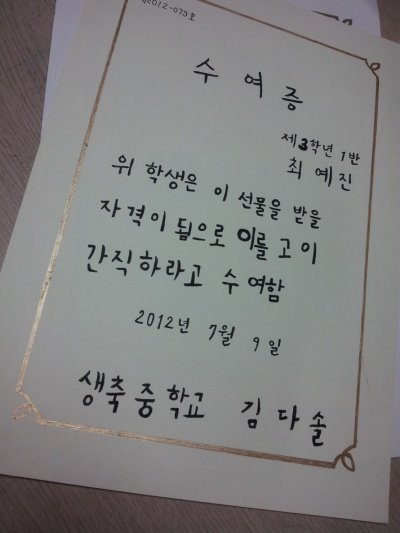 2012-073호
수여증
제3학년 1반
최예진
위 학생은 이 선물을 받을
자격이 됨으로 이를 고이
간직하라고 수여함
2012년 7월 9일
생축중학교 김다솔